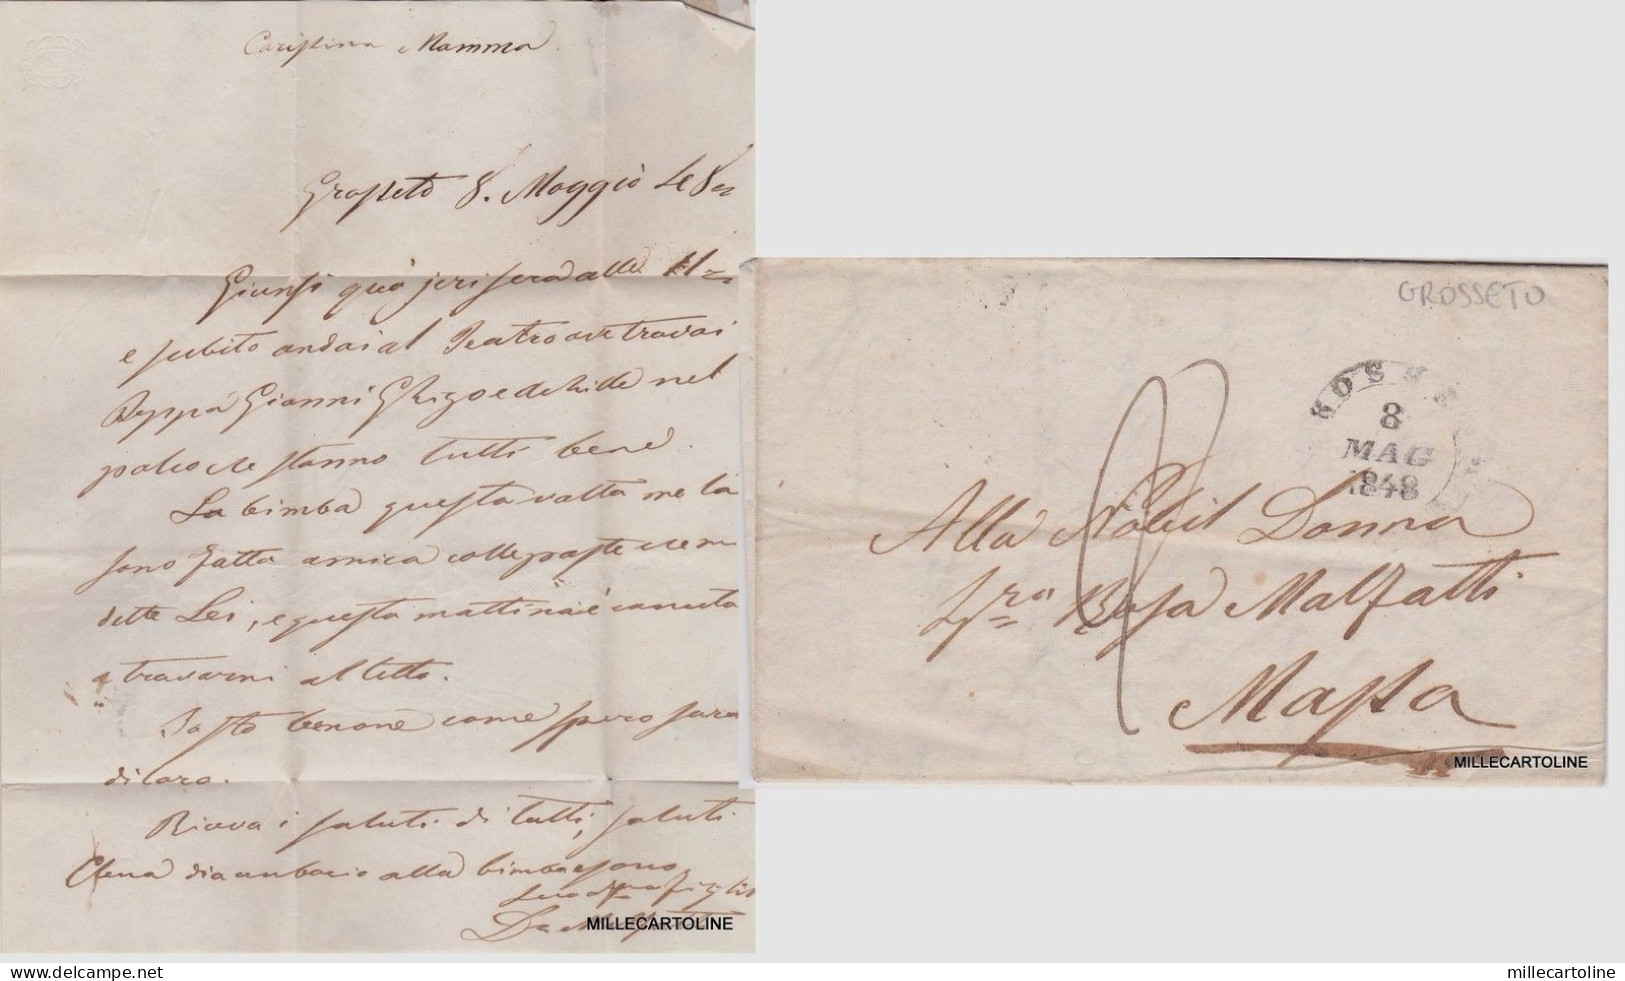 Carissima Mamma
Grosseto 8. Maggio 48
Giunsi quà jeri sera alle 11
e subito andai al Teatro ove trovai
Beppa Gianni Ghigo e nel
palco che stanno tutti bene.
La bimba questa volta me la
sono fatta amica colle paste che mi
dette Lei, e questa mattina è venuta
a trovarmi al letto.
Io sto bene come spero sarà
di loro.
Riceva i saluti di tutti, saluti
Elena dia un bacio alla bimba e sono
Suo figlio
MILLECARTOLINE
GROSSETO
8
MAG
1848
Alla Nobil Donna
Sig.ra Rosa Malfatti
Massa
MILLECARTOLINE
millecartoline.ecwid.com
millecartoline